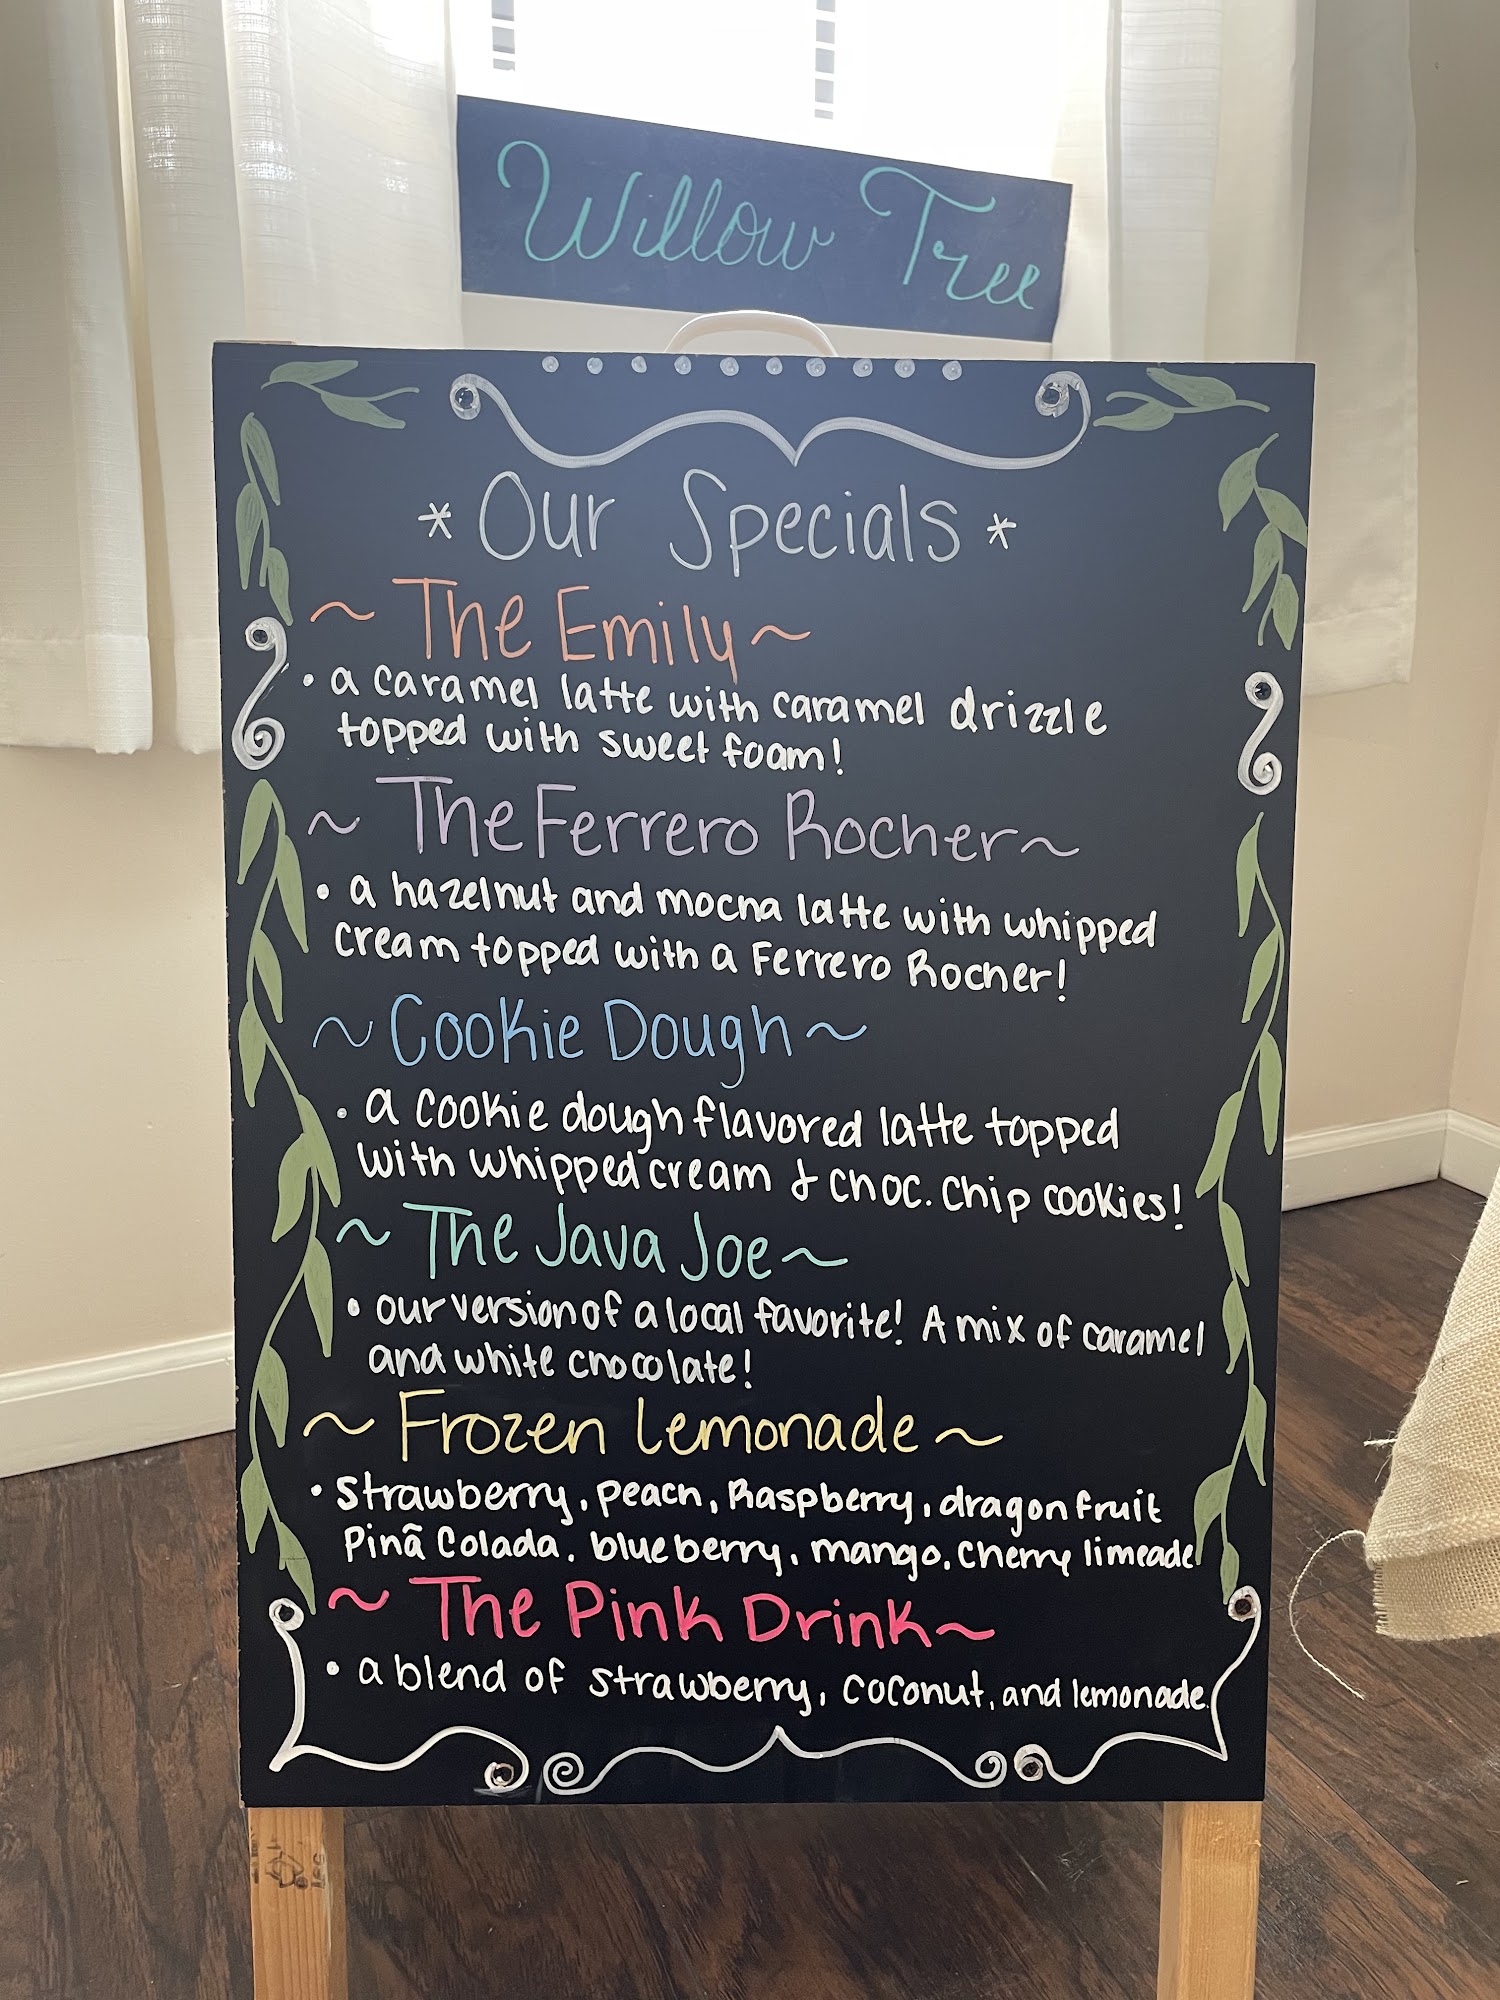 Willow Tree
* Our Specials *
~ The Emily ~
• a caramel latte with caramel drizzle
topped with sweet foam!
~ The Ferrero Rocher ~
• a hazelnut and mocha latte with whipped
cream topped with a Ferrero Rocher!
~ Cookie Dough ~
• a cookie dough flavored latte topped
with whipped cream & choc. chip cookies!
~ The Java Joe ~
• our version of a local favorite! A mix of caramel
and white chocolate!
~ Frozen Lemonade ~
• strawberry, peach, Raspberry, dragonfruit
Pinã Colada, blueberry, mango, cherry limeade
~ The Pink Drink ~
• a blend of strawberry, coconut, and lemonade.